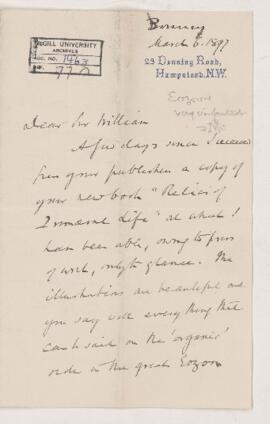 Bonney
McGILL UNIVERSITY
ARCHIVES
ACC. NO. 1463
REF. 77
March 6. 1897
23 Denning Road,
Hampstead. N.W.
Eozoon
very important
Dear Sir William
A few days since I received
from your publishers a copy of
your new book "Relics of
Primeval Life" at which I
have been able, owing to press
of work, only to glance. The
illustrations are beautiful and
you say well everything that
can be said on the 'organic'
side in the great Eozoon